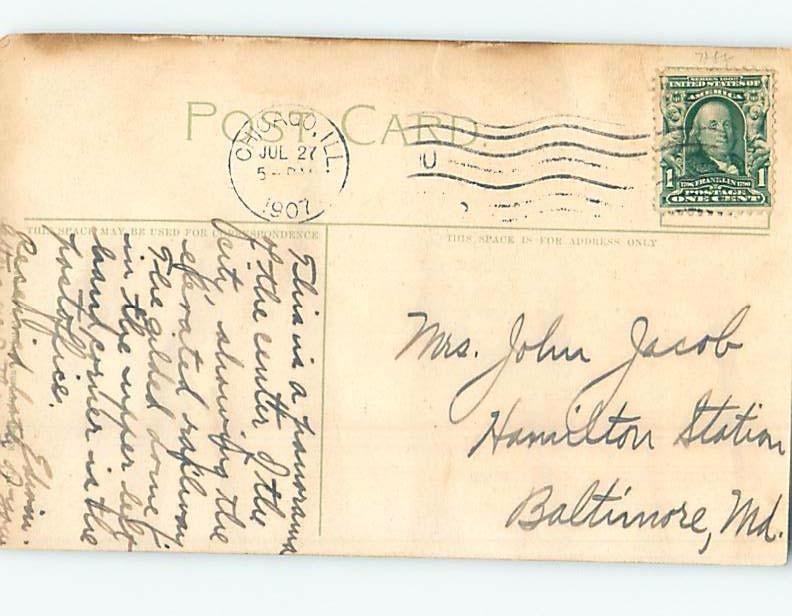 POST CARD.
CHICAGO, ILL.
JUL 27
1907
SERIES 1902
UNITED STATES OF
AMERICA
1 FRANKLIN 1
POSTAGE
ONE CENT
THIS SPACE MAY BE USED FOR CORRESPONDENCE
THIS SPACE IS FOR ADDRESS ONLY
This is a panorama
of the center of the
city showing the
elevated railway
The gilded dome
in the upper left
hand corner is the
postoffice.
Edwin.
Received
Mrs. John Jacob
Hamilton Station
Baltimore, Md.